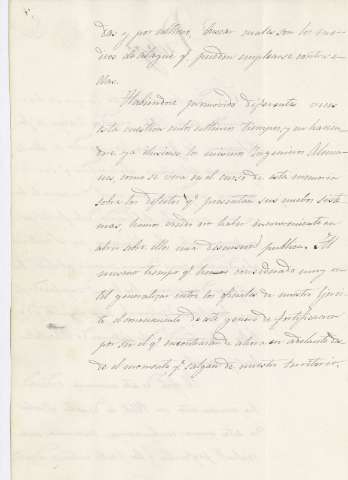 das y por ultimo, buscar cuales son los me-
dios de ataque q. pueden emplearse contra e-
llas.
Habiendose promovido diferentes veces
esta cuestion entos ultimos tiempos, y no hacien-
dose ya ilusiones los mismos Ingenieros Alema-
nes, como se vera en el curso de esta memoria
sobre los defectos q. presentan sus nuevos siste-
mas, hemos creido no haber inconveniente en
abrir sobre ellos una discusion publica. Al
mismo tiempo q. hemos considerado muy u-
til generalizar entre los oficiales de nuestro Ejerci-
to el conocimiento de este genero de fortificacion
por ser el q. encontraran de ahora en adelante des-
de el momento q. salgan de nuestro territorio.